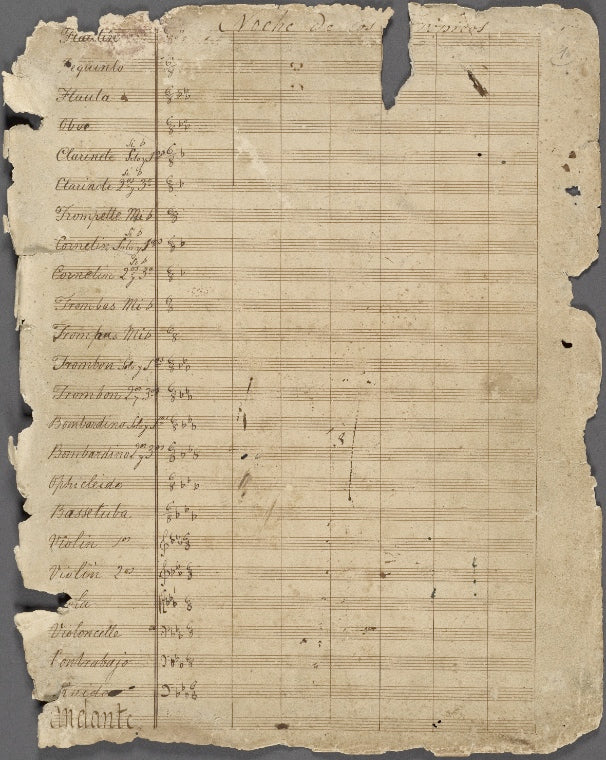 Noche de los
Flautin
Requinto
Flauta
Oboe
Clarinete Si b Solo y 1º
Clarinete Si b 2º y 3º
Trompette Mi b
Cornetin Si b Solo y 1º
Cornetin Si b 2º y 3º
Trombas Mi b
Trompas Mi b
Trombon Solo y 1º
Trombon 2º y 3º
Bombardino Solo y 1º
Bombardinos 2º y 3º
Ophicleido
Bassetuba
Violin 1º
Violin 2º
Violoncelle
Contrabajo
Andante